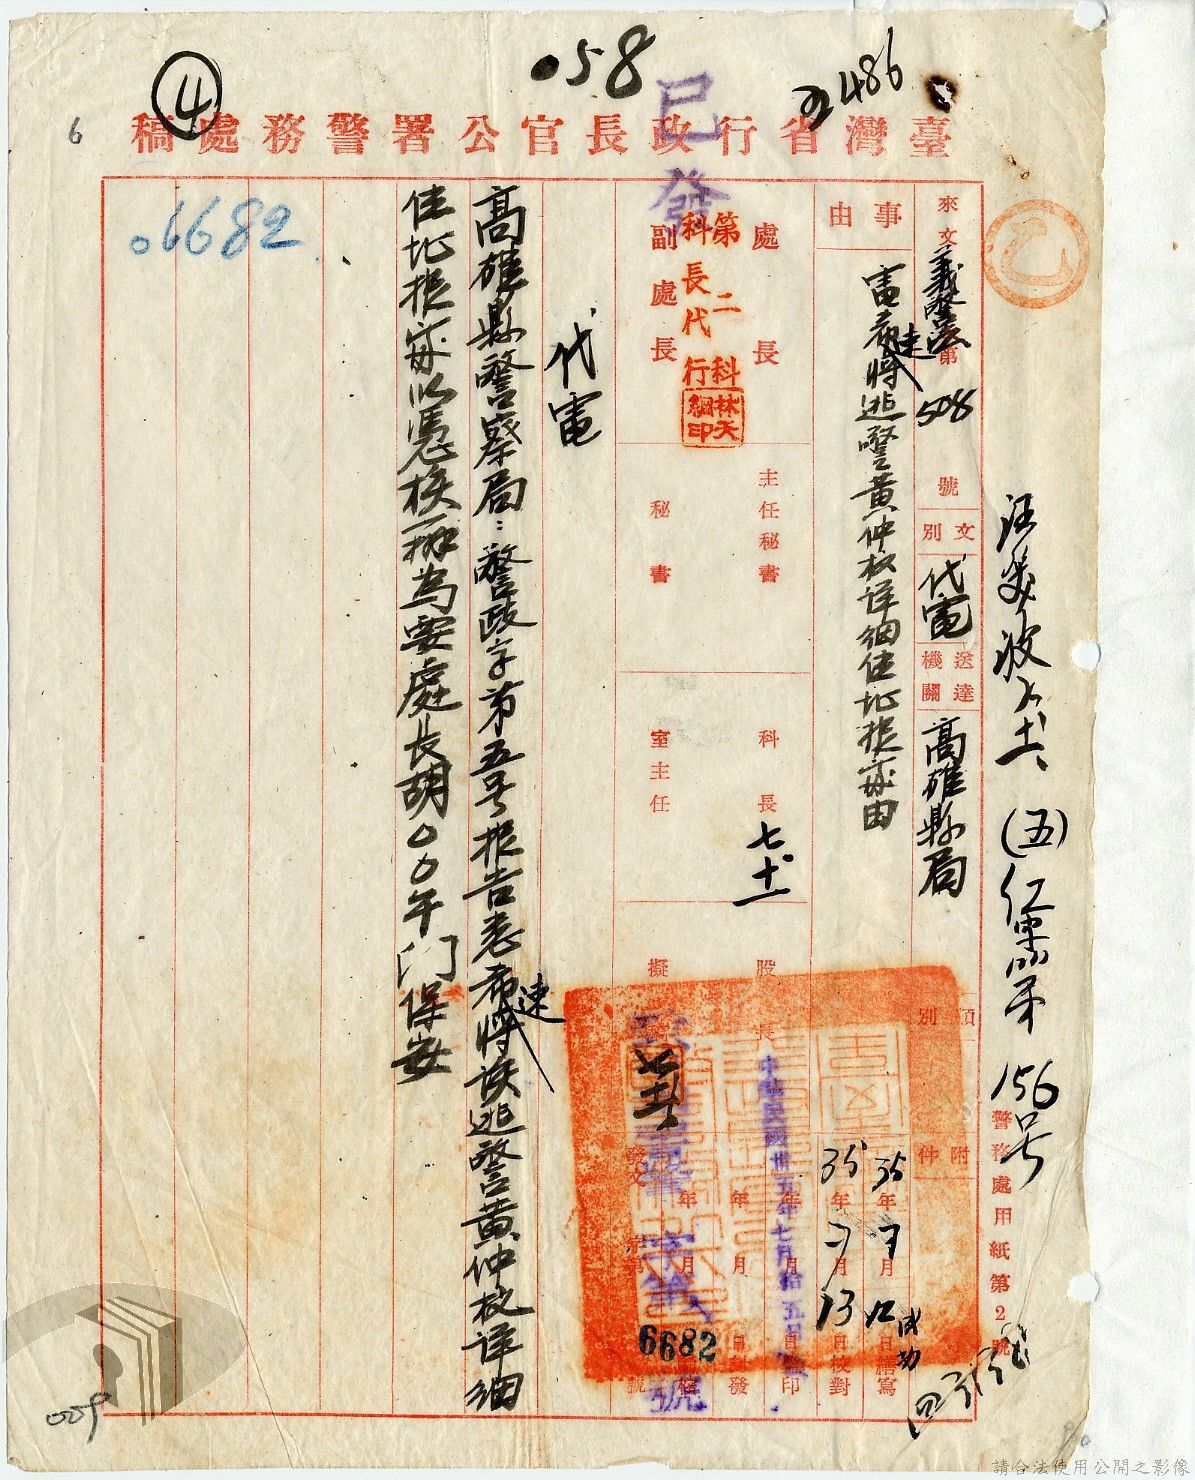 058
486
4
6
已發
臺灣省行政長官公署警務處稿
來文 義警法 第 508 號
文別 代電
送達機關 高雄縣局
類別
附件
事由
電希速將逃警黃仲校详細住址报府由
處長
副處長
第二科
科長代行
林天綱印
主任秘書
秘書
科長
室主任
七、十一
股長
擬
中華民國卅五年七月拾五日
35年7月12日繕寫
35年7月13日校對
年月日蓋印
年月日封發
發文 字第 6682 號
代電
高雄縣警察局：警政字第五号报告悉希速將该逃警黃仲校详細
住地报府以憑核辦為要處長胡〇〇午門保安
06682
(五)
156号
警務處用紙第2號
009
請合法使用公開之影像